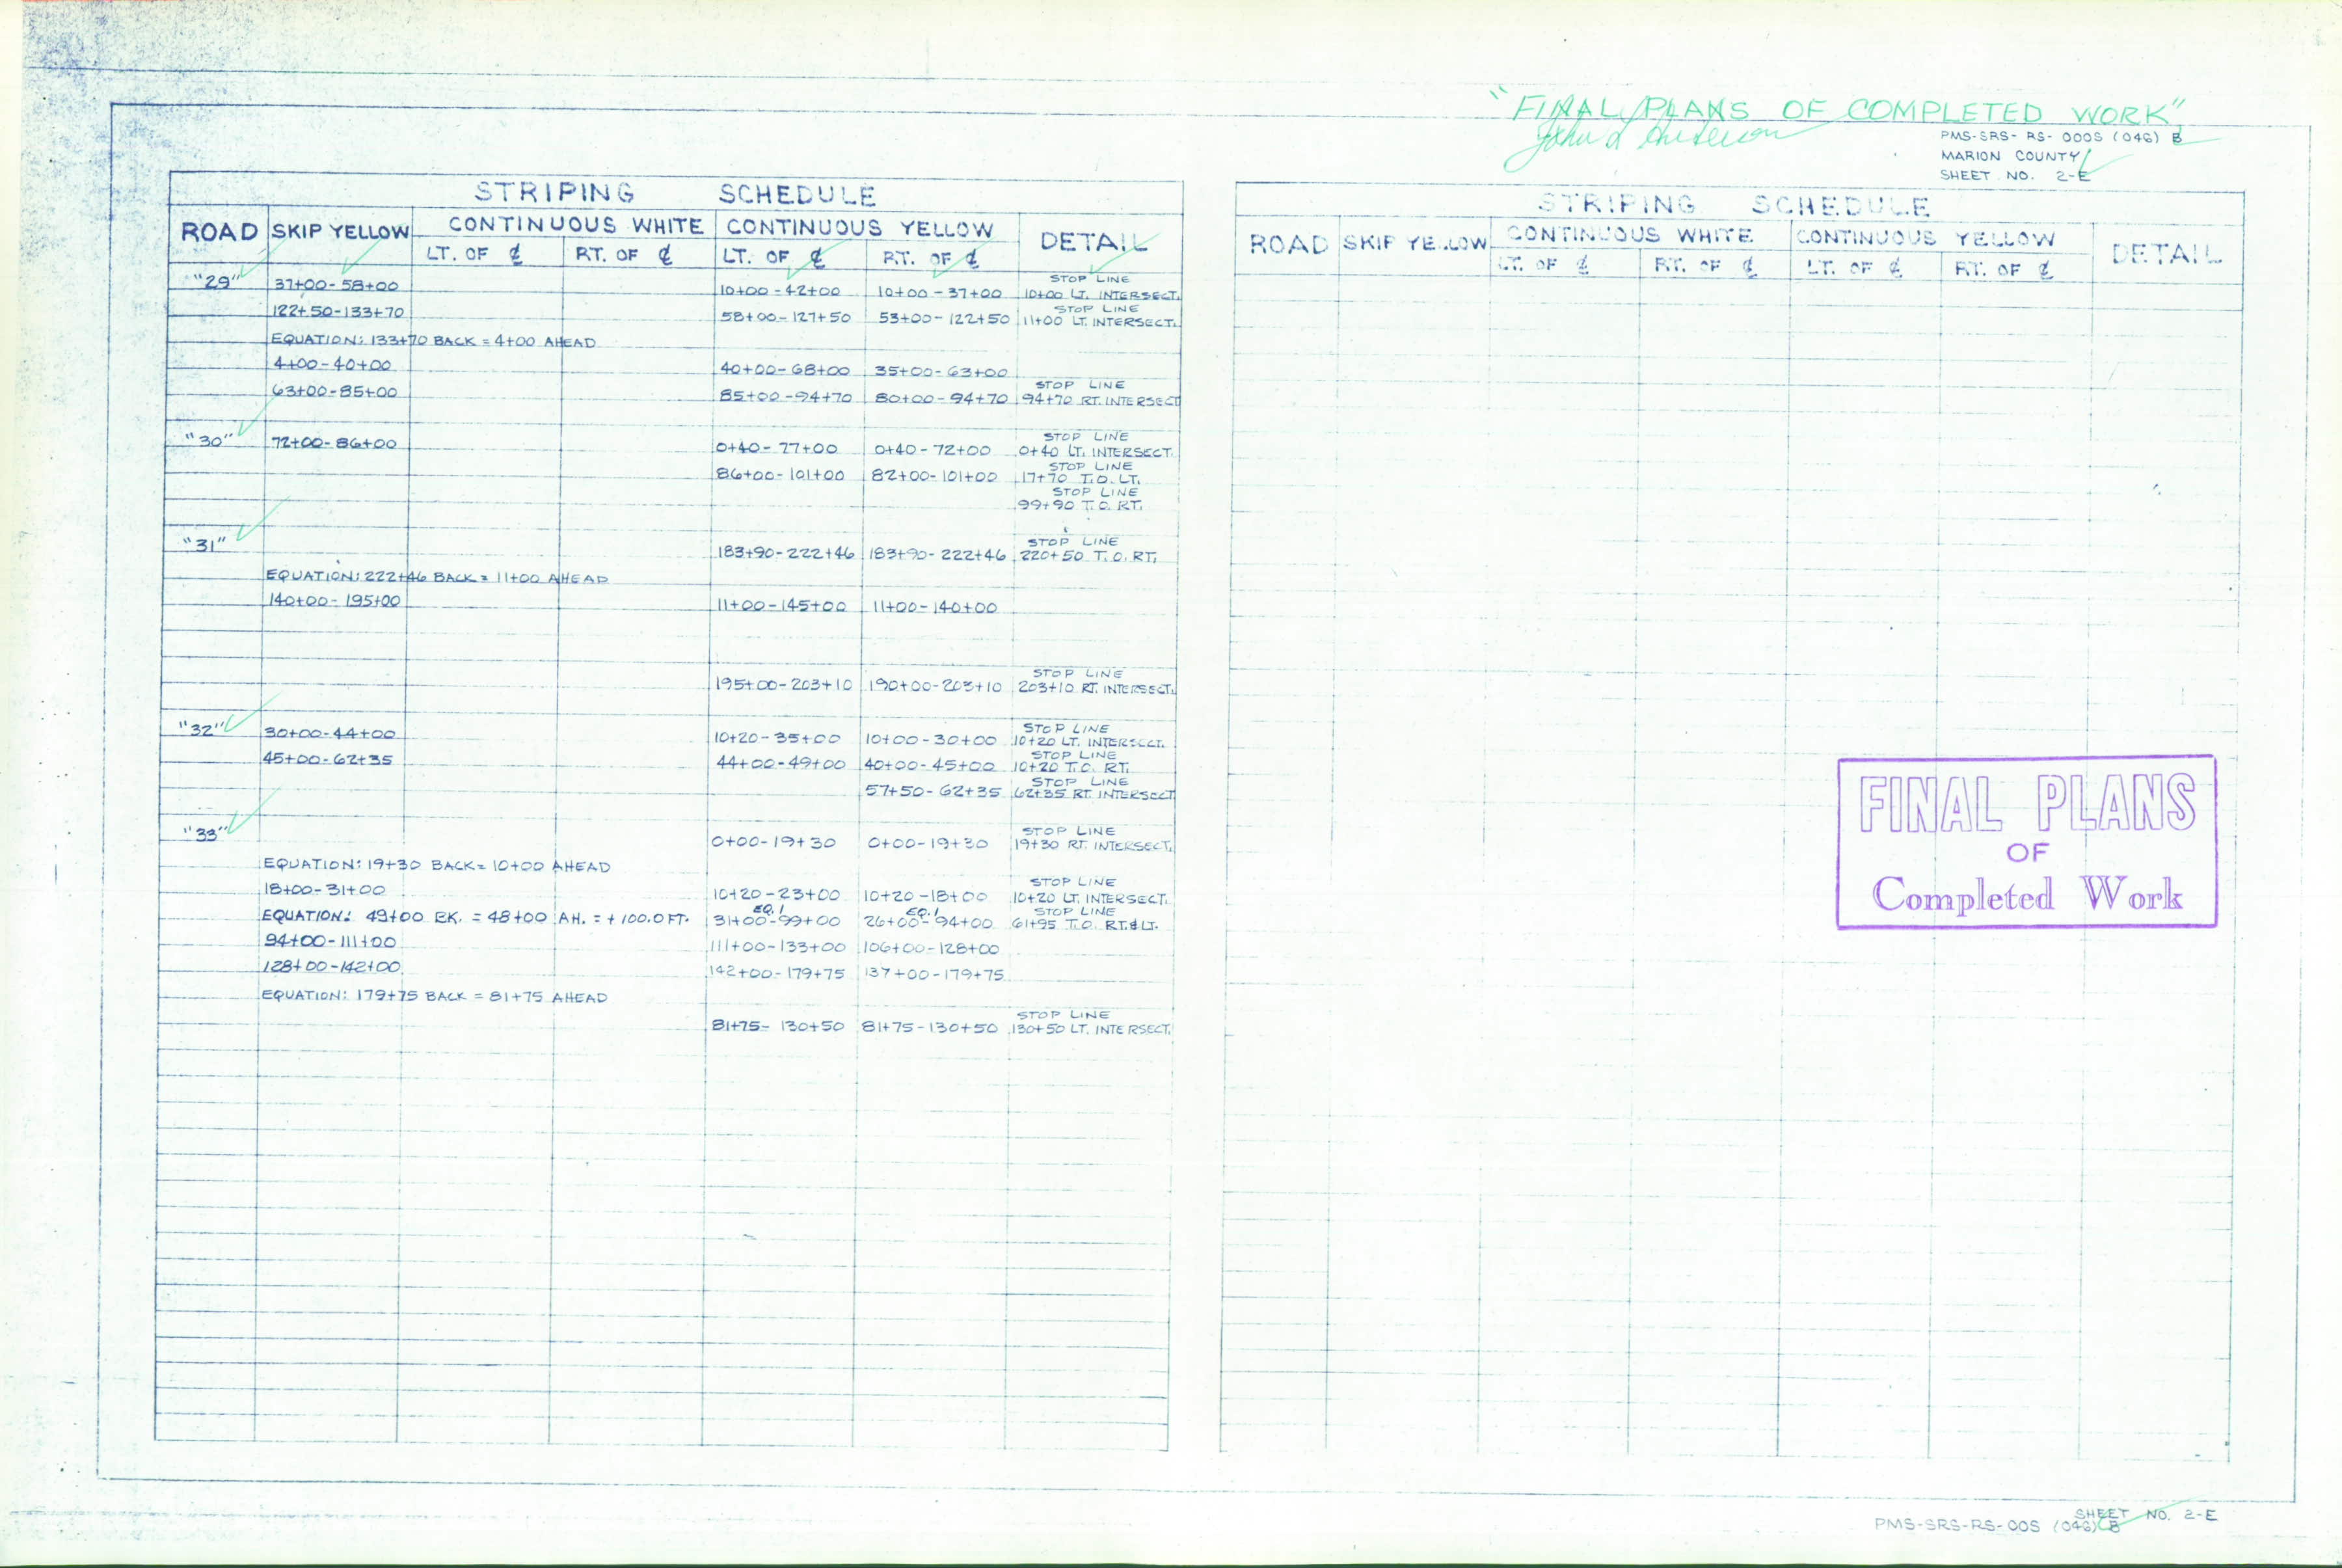 "FINAL PLANS OF COMPLETED WORK"
PMS-SRS-RS-000S (046) B
MARION COUNTY
SHEET NO. 2-E
STRIPING SCHEDULE
ROAD SKIP YELLOW CONTINUOUS WHITE CONTINUOUS YELLOW DETAIL
LT. OF ℄ RT. OF ℄ LT. OF ℄ RT. OF ℄
STOP LINE
"29" 37+00-58+00 10+00-42+00 10+00-37+00 10+00 LT. INTERSECT.
STOP LINE
122+50-133+70 58+00-127+50 53+00-122+50 11+00 LT. INTERSECT.
EQUATION: 133+70 BACK = 4+00 AHEAD
4+00-40+00 40+00-68+00 35+00-63+00
STOP LINE
63+00-85+00 85+00-94+70 80+00-94+70 94+70 RT. INTERSECT
STOP LINE
"30" 72+00-86+00 0+40-77+00 0+40-72+00 0+40 LT. INTERSECT.
STOP LINE
86+00-101+00 82+00-101+00 17+70 T.O. LT.
STOP LINE
99+90 T.O. RT.
STOP LINE
"31" 183+90-222+46 183+90-222+46 220+50 T.O. RT.
EQUATION: 222+46 BACK = 11+00 AHEAD
140+00-195+00 11+00-145+00 11+00-140+00
STOP LINE
195+00-203+10 190+00-203+10 203+10 RT. INTERSECT.
STOP LINE
"32" 30+00-44+00 10+20-35+00 10+00-30+00 10+20 LT. INTERSECT.
STOP LINE
45+00-62+35 44+00-49+00 40+00-45+00 10+20 T.O. RT.
STOP LINE
57+50-62+35 62+35 RT. INTERSECT
STOP LINE
"33" 0+00-19+30 0+00-19+30 19+30 RT. INTERSECT.
EQUATION: 19+30 BACK = 10+00 AHEAD
STOP LINE
18+00-31+00 10+20-23+00 10+20-18+00 10+20 LT. INTERSECT.
EQ.1 EQ.1 STOP LINE
EQUATION: 49+00 BK. = 48+00 AH. = +100.0 FT. 31+00-99+00 26+00-94+00 61+95 T.O. RT.&LT.
94+00-111+00 111+00-133+00 106+00-128+00
128+00-142+00 142+00-179+75 137+00-179+75
EQUATION: 179+75 BACK = 81+75 AHEAD
STOP LINE
81+75-130+50 81+75-130+50 130+50 LT. INTERSECT.
STRIPING SCHEDULE
ROAD SKIP YELLOW CONTINUOUS WHITE CONTINUOUS YELLOW DETAIL
LT. OF ℄ RT. OF ℄ LT. OF ℄ RT. OF ℄
FINAL PLANS
OF
Completed Work
SHEET NO. 2-E
PMS-SRS-RS-00S (046) B